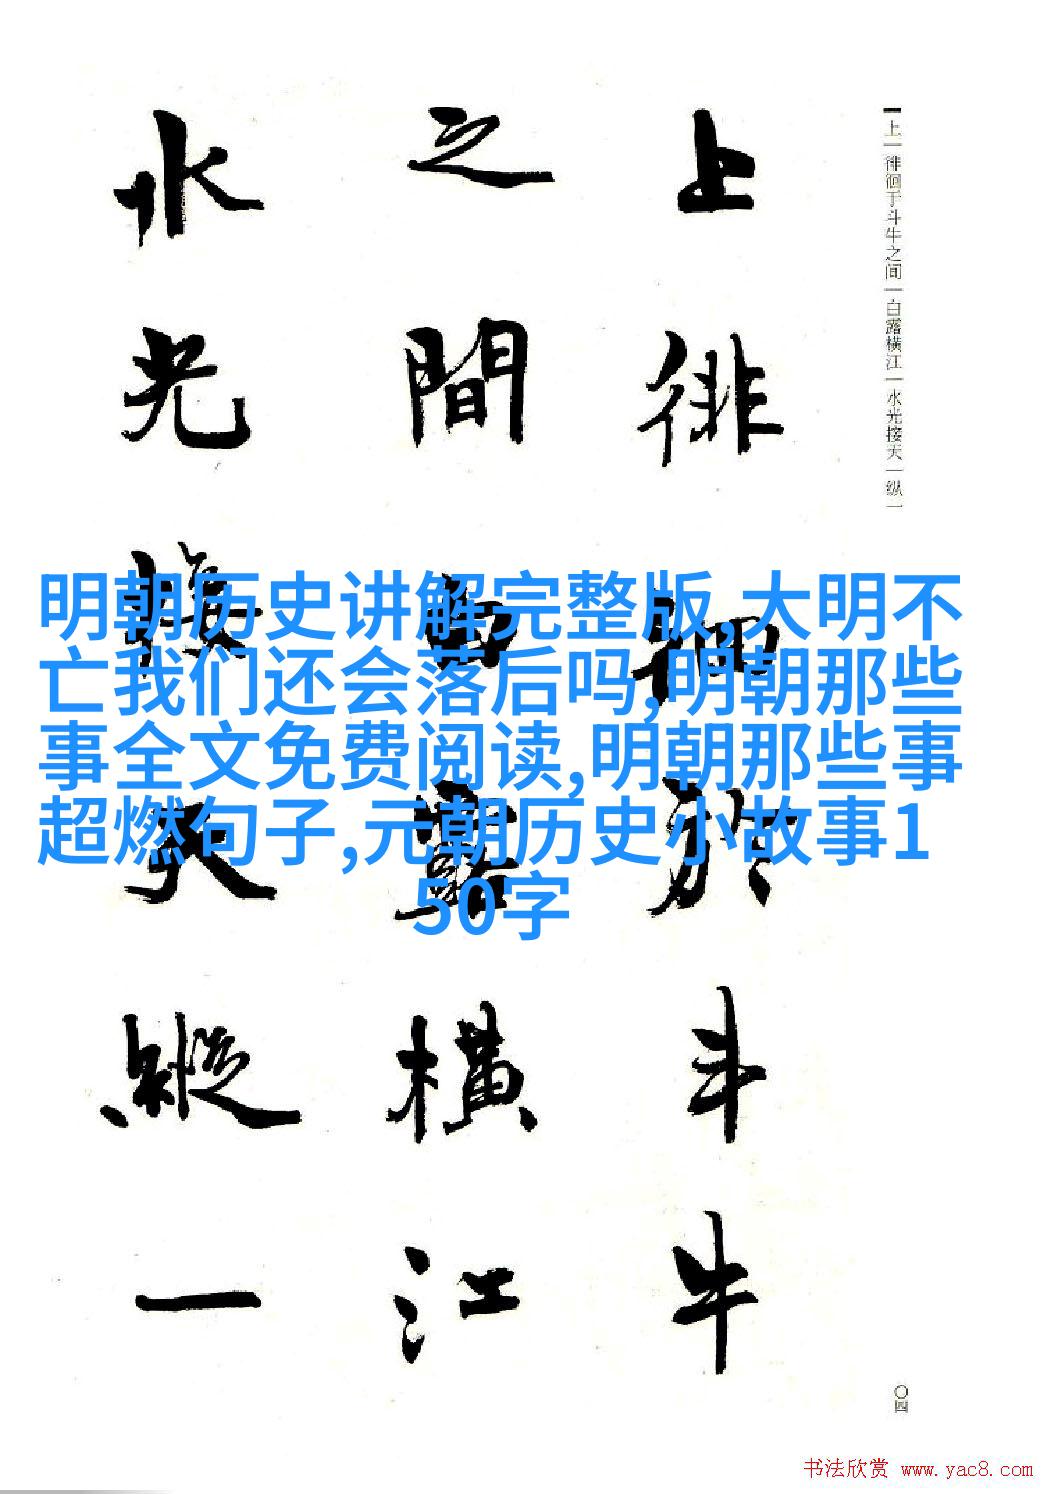 上徘徊於斗牛
之間白露橫江
水光接天縱一
上一徘徊于斗牛之间一白露横江一水光接天一纵一
明朝历史讲解完整版,大明不
亡我们还会落后吗,明朝那些
事全文免费阅读,明朝那些事
超燃句子,元朝历史小故事1
50字
〇四
书法欣赏 www.yac8.com